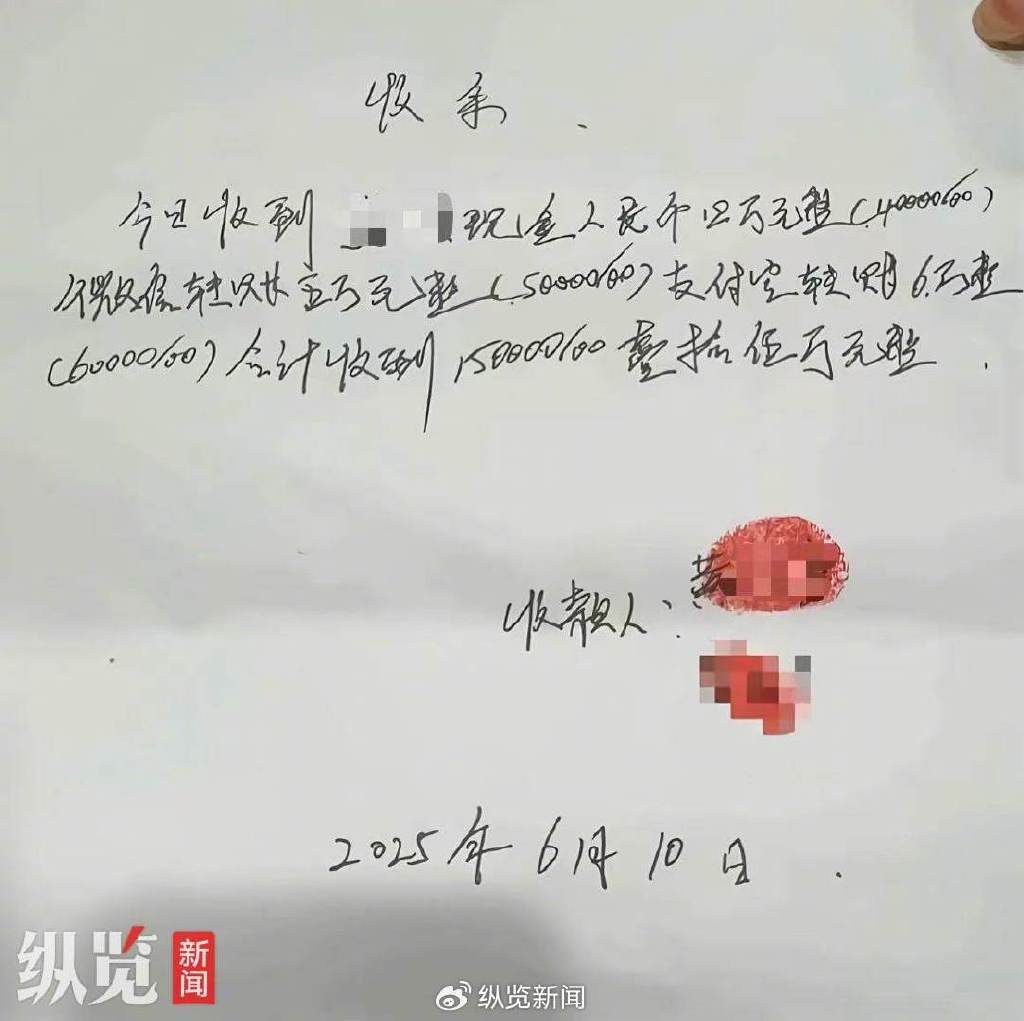 收条.
今日收到 现金人民币四万元整(40000/00)
微信转账五万元整(50000/00)支付宝转账6万整
(60000/00)合计收到150000/00壹拾伍万元整.
收款人: 黄
2025年6月10日.
纵览新闻
纵览新闻